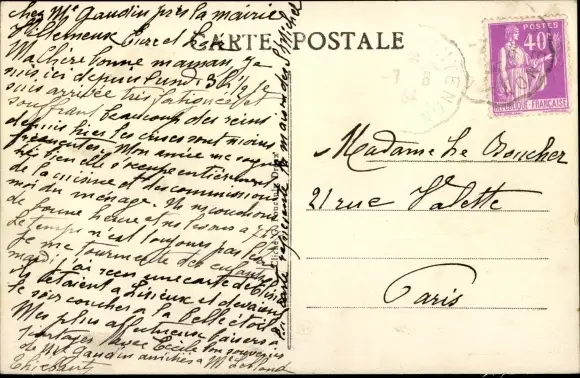 chez Mᵉ Gaudin près la mairie
Villemeux Eure et
Ma chère bonne maman, Je
suis ici depuis lundi 3h 1/2 je
suis arrivée très fatiguée et
souffrant beaucoup des reins
depuis hier les crises sont moins
fréquentes. Mon amie me soigne
très bien elle s'occupe entièrement
de la cuisine et des commissions
moi du ménage. Nous couchons
de bonne heure et nous levons à 7h
le temps n'est toujours pas beau
Je me tourmente des enfants
mardi j'ai reçu une carte de
ils étaient à Lisieux et devaient
le soir coucher à la belle étoile
Mes plus affectueux baisers à
partager avec Cécile bon souvenir
de Mᵉ Gaudin amitiés à Mᵉ Leblond
Thiébaut
CARTE POSTALE
la carte représente la maison de
POSTES
40c
RÉPUBLIQUE FRANÇAISE
Madame Le Boucher
21 rue Valette
Paris